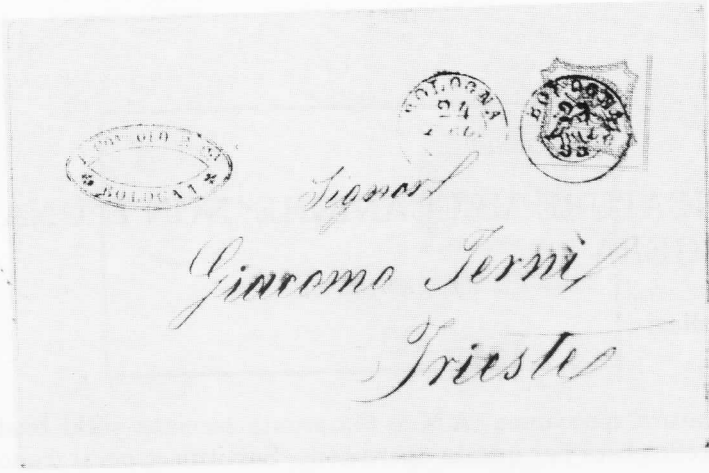 BOLOGNA
24
BOLOGNA
BOLOGNA
Signor
Giacomo Terni
Trieste